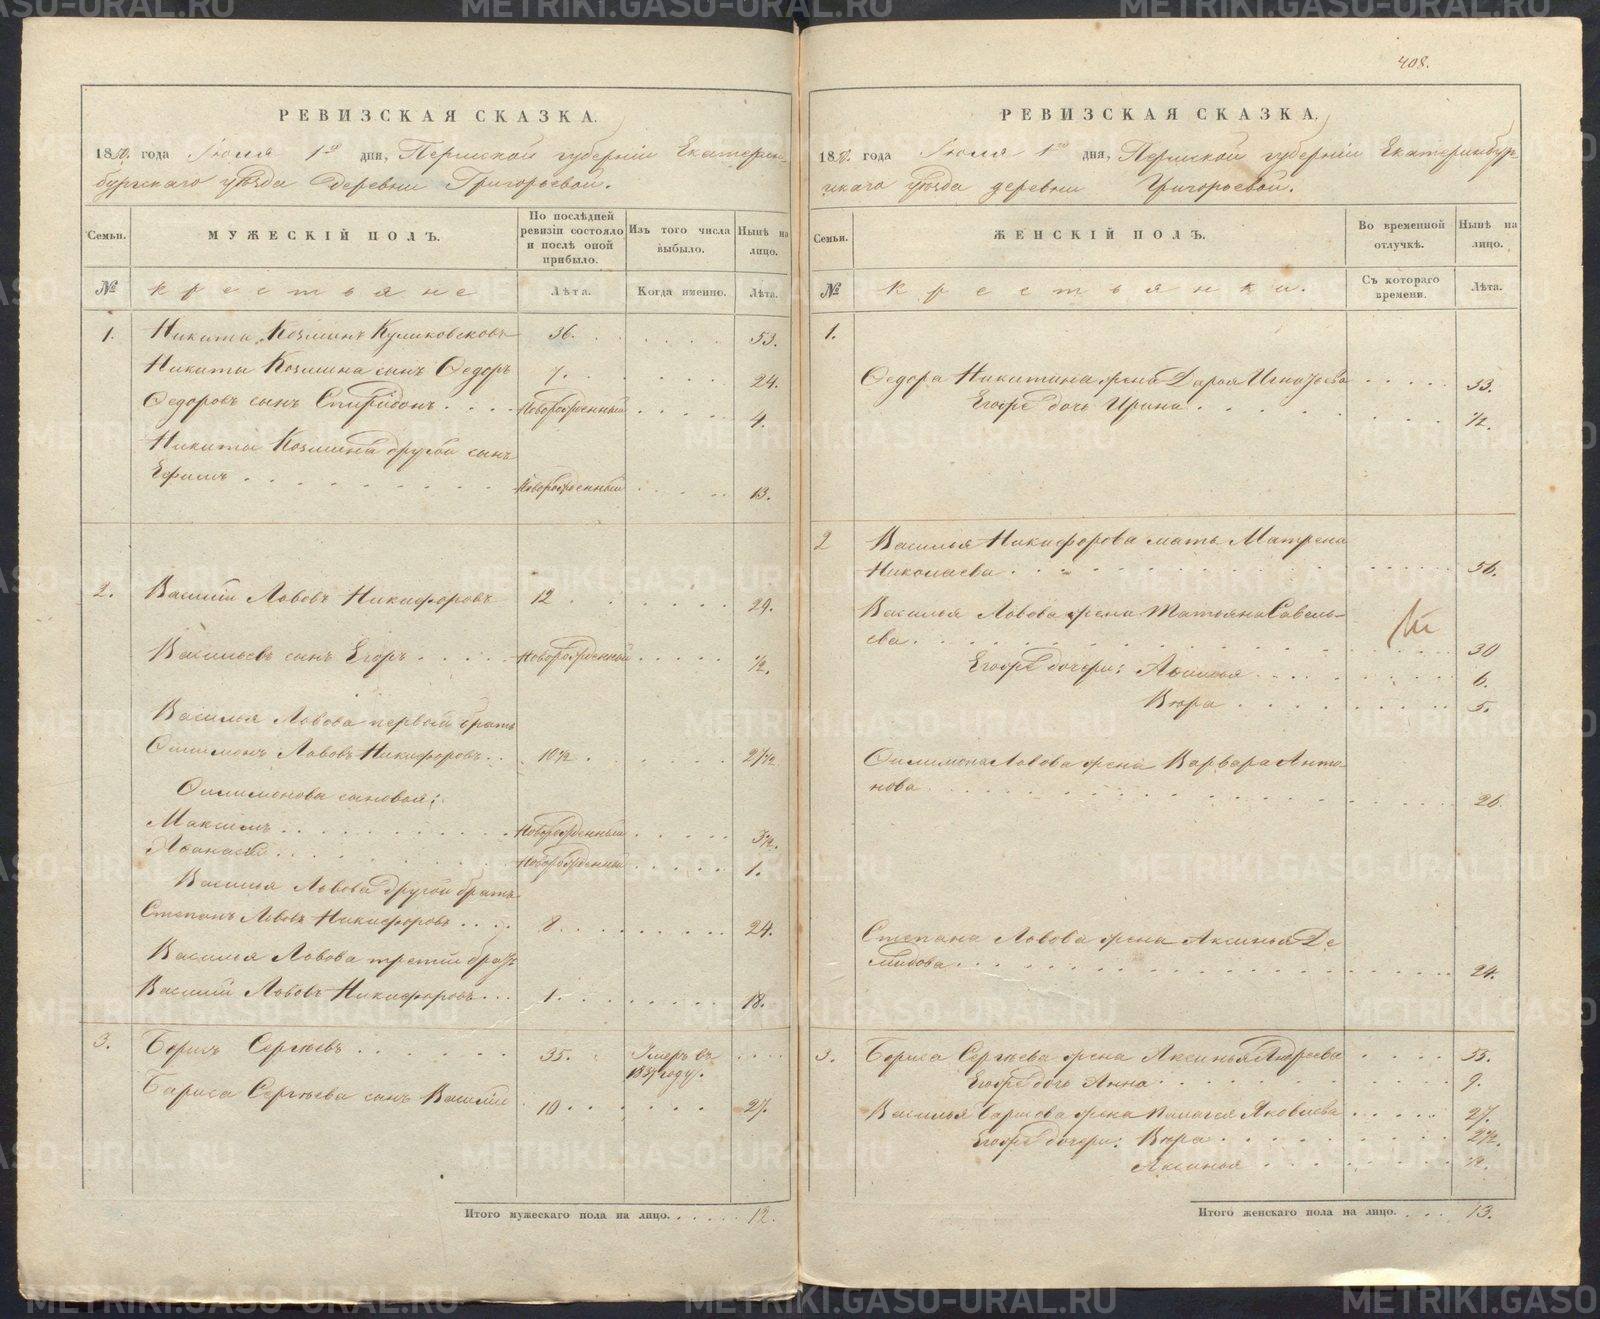 408.
РЕВИЗСКАЯ СКАЗКА.
1850. года Іюля 1го дня, Пермской губерніи Екатерин-
бургскаго уѣзда Деревни Григорьевой.
Семьи.
МУЖЕСКІЙ ПОЛЪ.
По послѣдней ревизіи состояло и послѣ оной прибыло.
Изъ того числа выбыло.
Нынѣ на лицо.
№ крестьяне Лѣта. Когда именно. Лѣта.
1. Никита Козминъ Куликовсковъ 36. 53.
Никиты Козмина сынъ Ѳедоръ 7. 24.
Ѳедоровъ сынъ Спиридонъ новорожденный 4.
Никиты Козмина другой сынъ
Ефимъ новорожденный 13.
2. Василій Львовъ Никифоровъ 12 29.
Васильевъ сынъ Егоръ новорожденный ½.
Василья Львова первый братъ
Филимонъ Львовъ Никифоровъ 10½ 27½
Филимонова сыновья:
Максимъ новорожденный 3½.
Аѳанасій новорожденный 1.
Василья Львова другой братъ
Степанъ Львовъ Никифоровъ 8. 24.
Василья Львова третій братъ
Василій Львовъ Никифоровъ 1. 18.
3. Борисъ Сергѣевъ 35. Умеръ въ
году.
Бориса Сергѣева сынъ Василій 10 27.
Итого мужескаго пола на лицо. 12.
РЕВИЗСКАЯ СКАЗКА.
1850. года Іюля 1го дня, Пермской губерніи Екатеринбур-
гскаго уѣзда деревни Григорьевой.
Семьи.
ЖЕНСКІЙ ПОЛЪ.
Во временной отлучкѣ.
Нынѣ на лицо.
№ крестьянки. Съ котораго времени. Лѣта.
1.
Ѳедора Никитина жена Дарья Игнатьева 33.
Егожъ дочь Ирина ½.
2 Василья Никифорова мать Матрена
Николаева 56.
Василья Львова жена Татьяна Савель-
ева 30
Егожъ дочери: Аксинья 6.
Вѣра 5.
Филимона Львова жена Варвара Анто-
нова 26.
Степана Львова жена Аксинья Де
мидова 24.
3. Бориса Сергѣева жена Аксинья Андреева 53.
Егожъ дочь Анна 9.
Василья Борисова жена Пелагея Яковлева 27.
Егожъ дочери: Вѣра 2½.
Аксинья ½.
Итого женскаго пола на лицо. 13.
METRIKI.GASO-URAL.RU